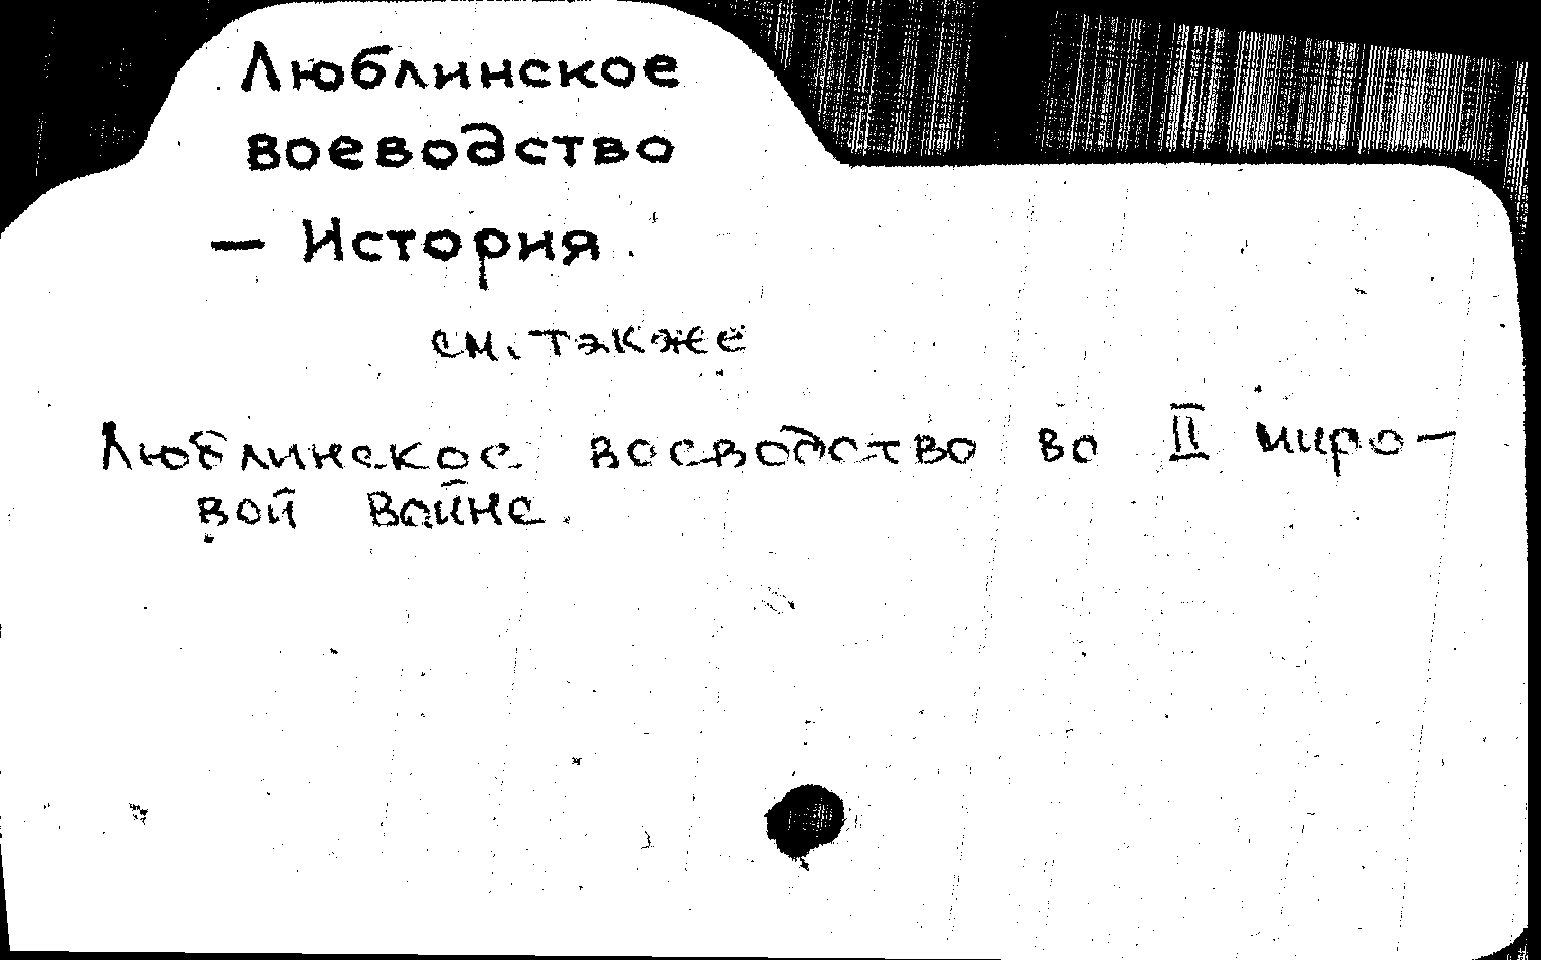 Люблинское
воеводство
— История.
см. также
Люблинское воеводство во II миро-
вой войне.